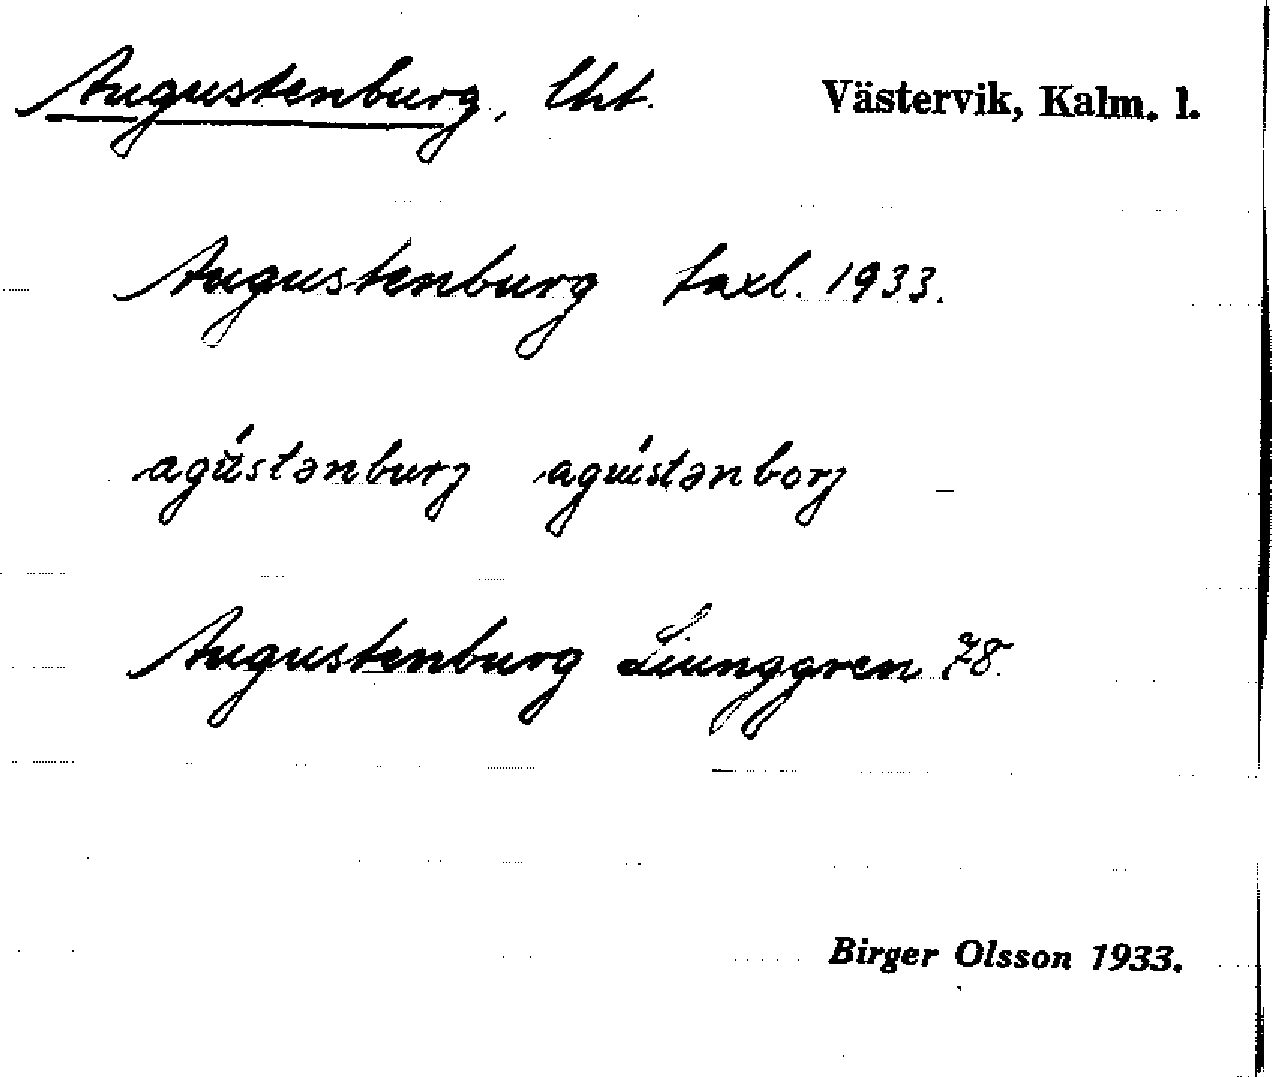 Augustenburg, lht. Västervik, Kalm. l.
Augustenburg taxl. 1933.
agústənburj agústənborj
Augustenburg Liunggren 78.
Birger Olsson 1933.